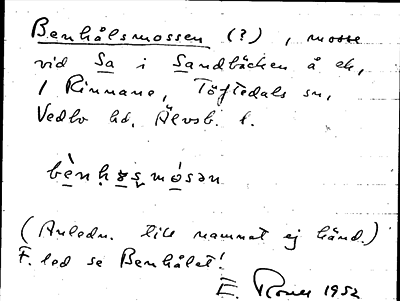 Benhålsmossen (?), mosse
vid Sa i Sandbäcken å ek,
1 Rinnane, Töftedals sn,
Vedbo hd, Älvsb. l.
(Anledn. till namnet ej känd.)
F. led se Benhålet!
E. 1952